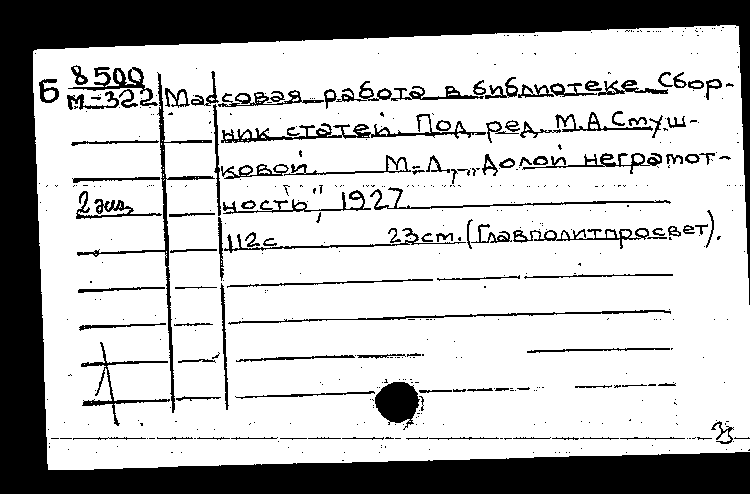 Б 8500
М-322 Массовая работа в библиотеке. Сбор-
ник статей. Под ред. М.А.Смуш-
ковой. М.-Л., „Долой неграмот-
2 экз. ность", 1927.
112с 23см. (Главполитпросвет).